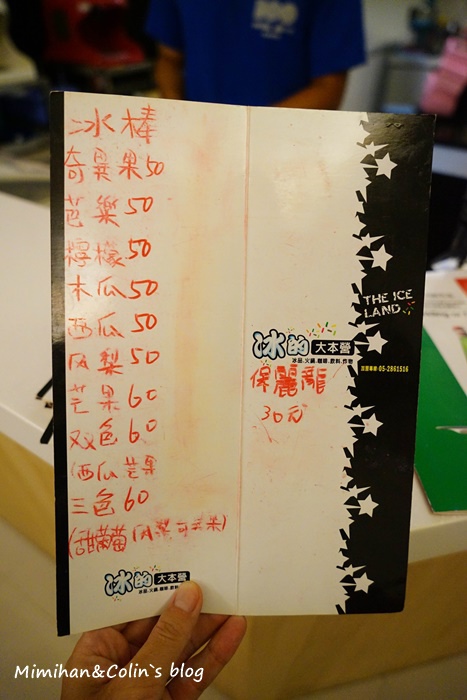 冰棒
奇異果50
芭樂50
檸檬50
木瓜50
西瓜50
凤梨50
芒果60
双色60
(西瓜芒果
三色60
冰的大本營
THE ICE
LAND
冰的 大本營
冰品.火鍋.糖果.飲料.炸物
訂購專線:05-2861516
保麗龍
30元
Mimihan&Colin`s blog